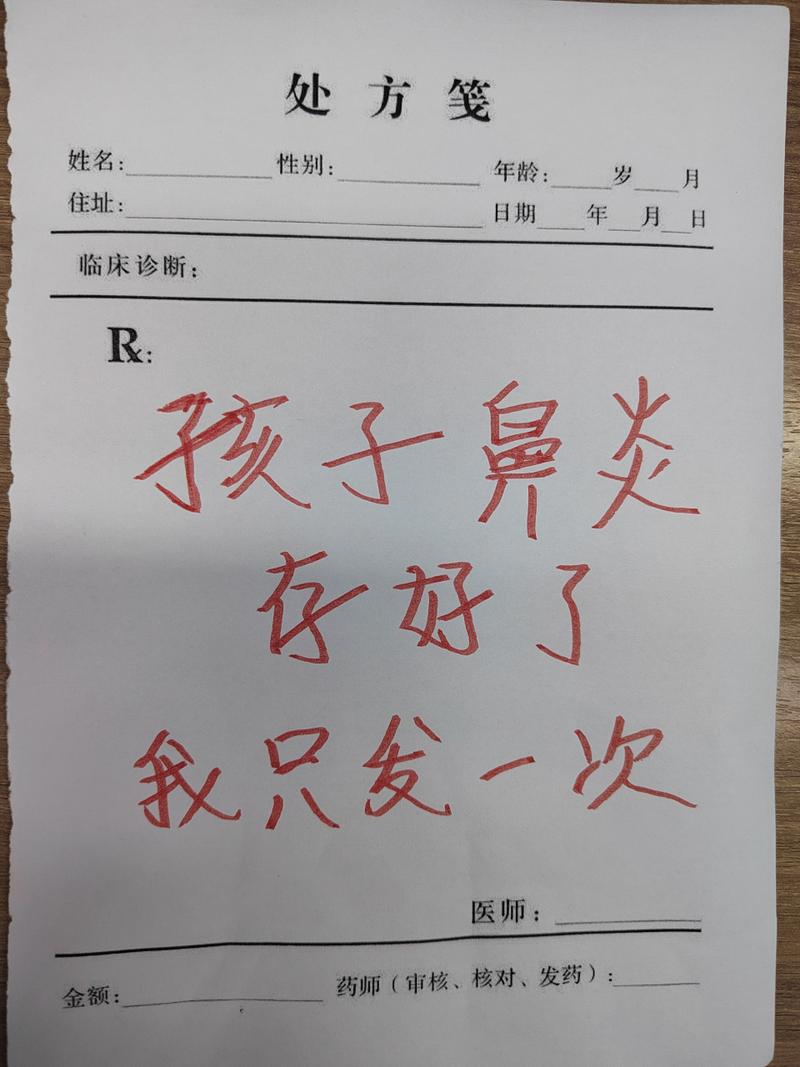 处方笺
姓名: 性别: 年龄: 岁 月
住址: 日期 年 月 日
临床诊断:
Rx:
孩子鼻炎
存好了
我只发一次
医师:
金额: 药师(审核、核对、发药):